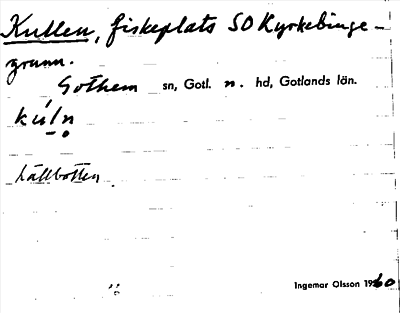 Kullen, fiskeplats SO Kyrkebinge-
grunn.
Gothem sn, Gotl. n. hd, Gotlands län.
kúḷṇ
hällbotten
Ingemar Olsson 1960